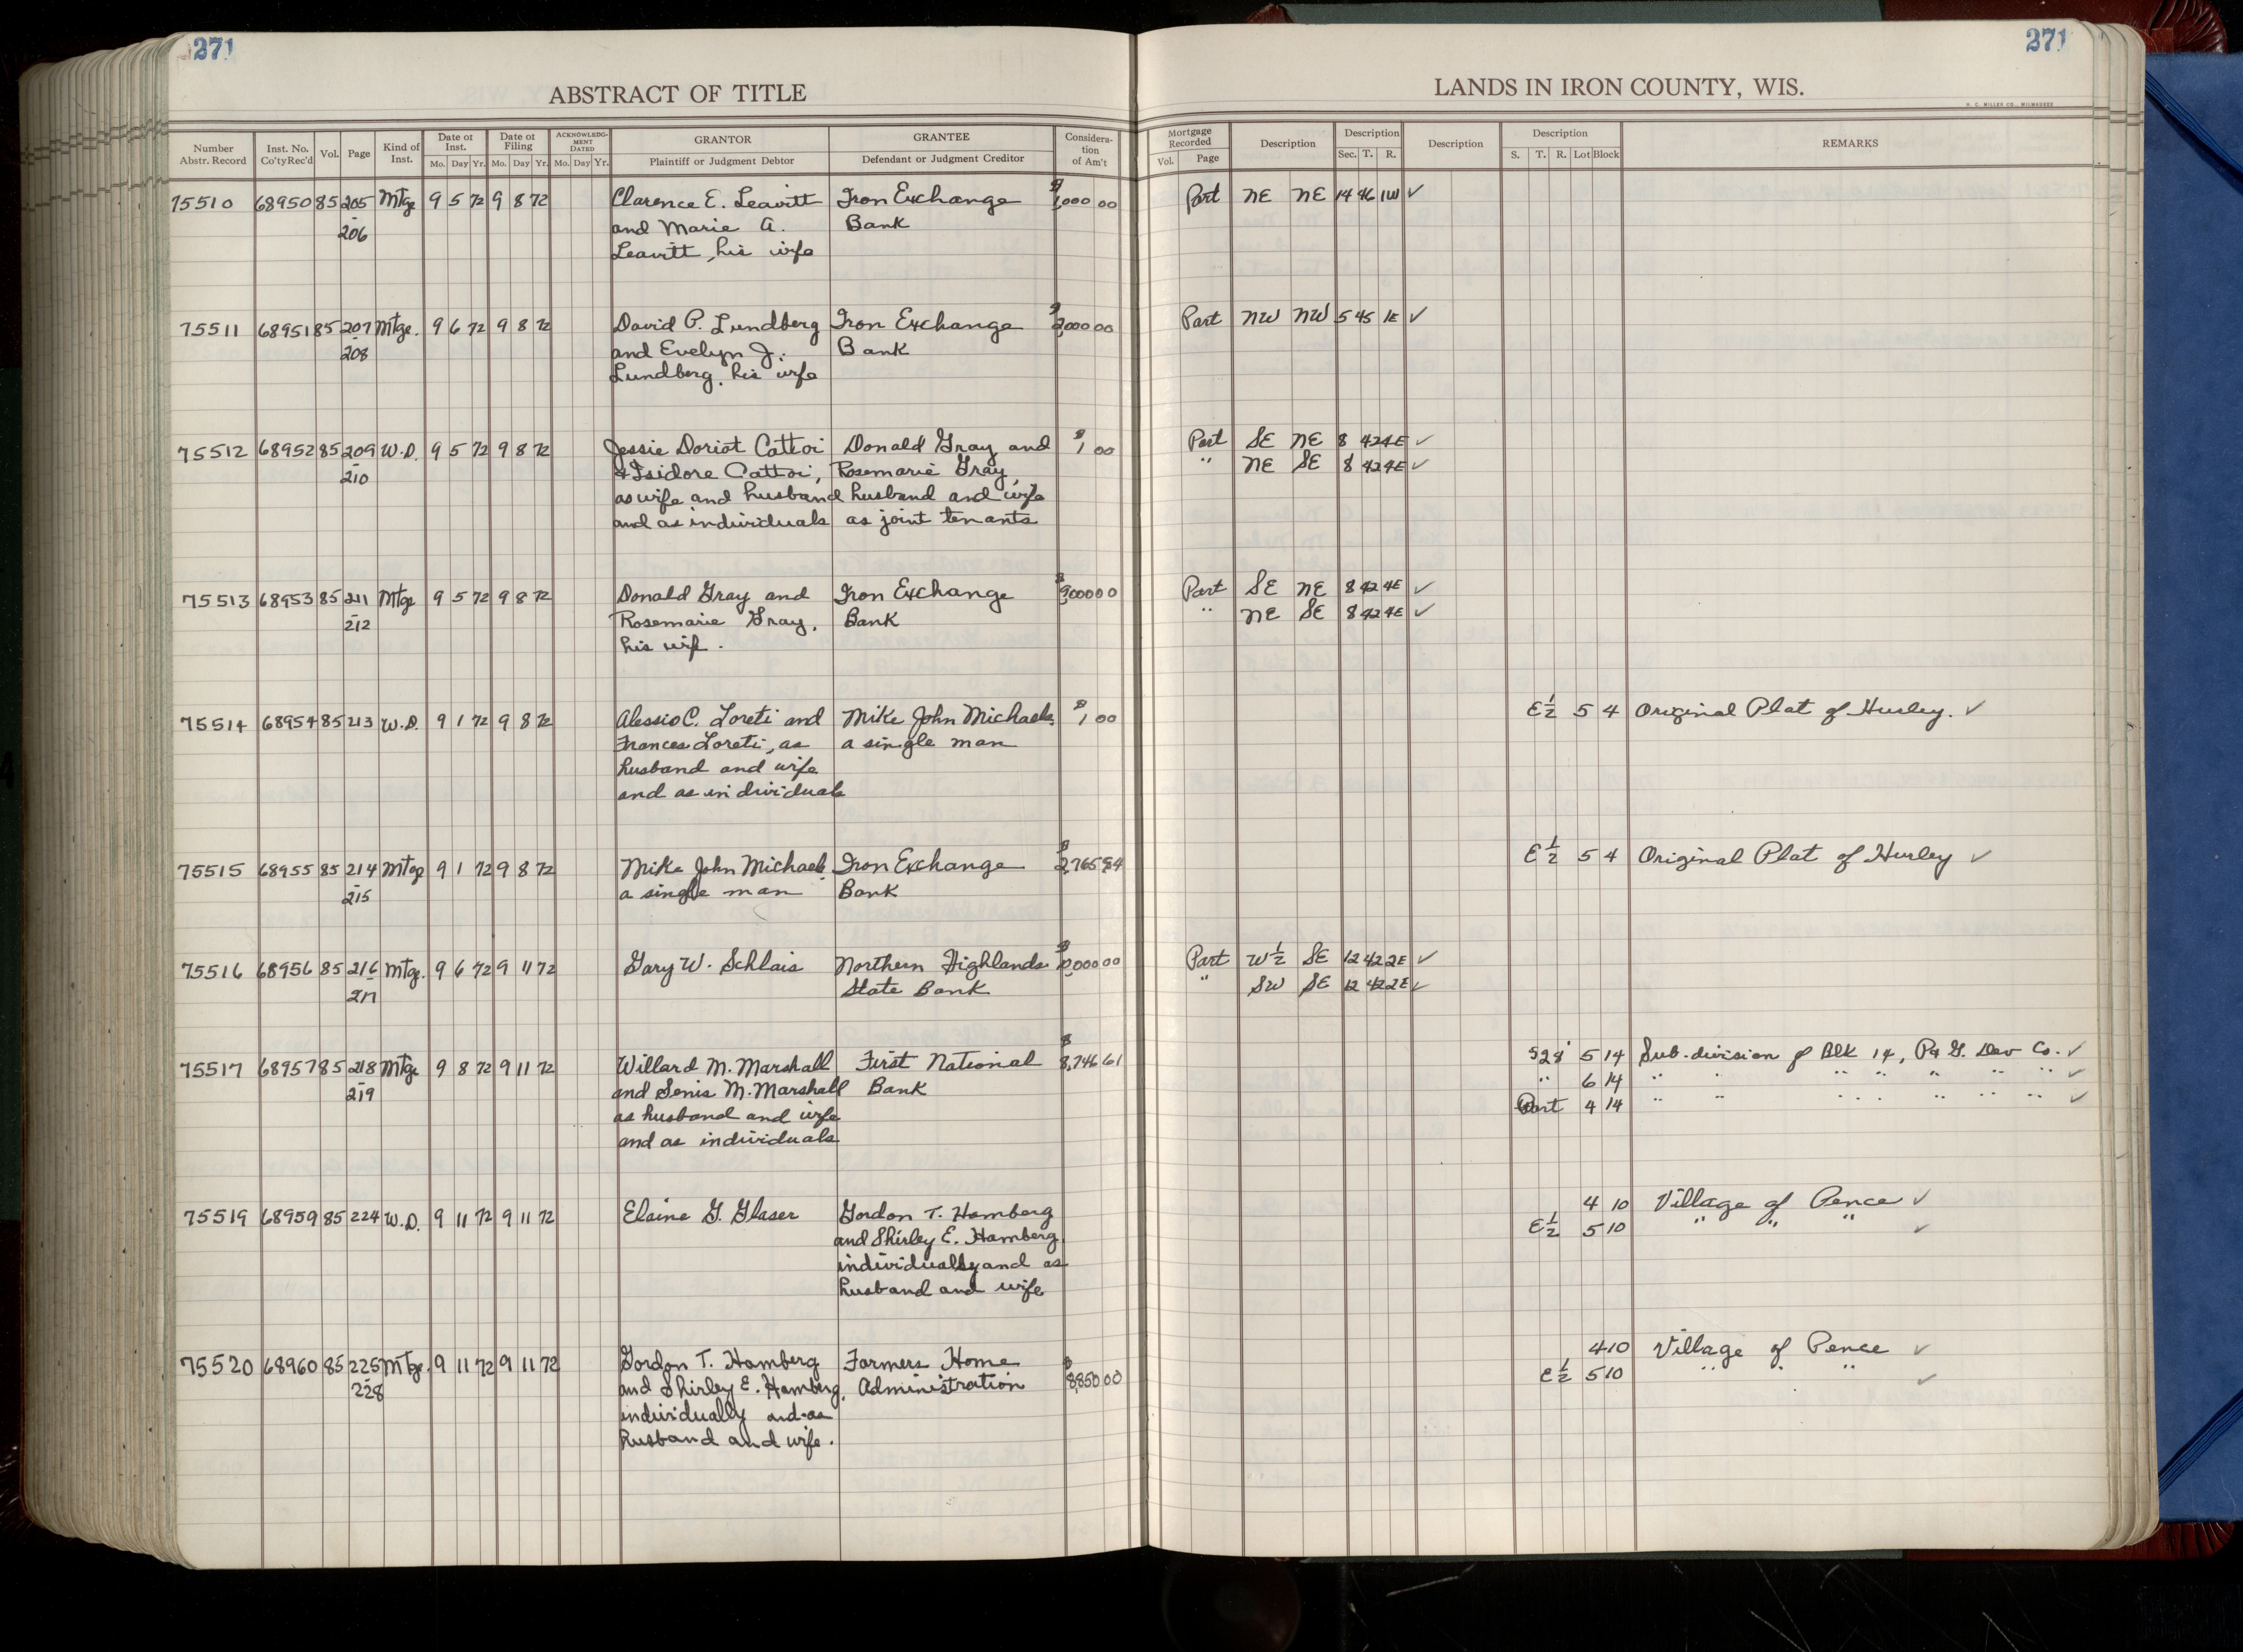 271
271
ABSTRACT OF TITLE
LANDS IN IRON COUNTY, WIS.
H. C. MILLER CO., MILWAUKEE
Number Abstr. Record | Inst. No. Co'ty Rec'd | Vol. | Page | Kind of Inst. | Date of Inst. Mo. Day Yr. | Date of Filing Mo. Day Yr. | ACKNOWLEDGMENT DATED Mo. Day Yr. | GRANTOR Plaintiff or Judgment Debtor | GRANTEE Defendant or Judgment Creditor | Consideration of Am't | Mortgage Recorded Vol. Page | Description | Description Sec. T. R. | Description | Description S. T. R. Lot Block | REMARKS
75510 68950 85 205 Mtge 9 5 72 9 8 72 Clarence E. Leavitt Iron Exchange $ ,000 00 Part NE NE 14 46 1W ✓
- 206 and Marie A. Bank
Leavitt, his wife
75511 68951 85 207 Mtge. 9 6 72 9 8 72 David P. Lundberg Iron Exchange $2,000 00 Part NW NW 5 45 1E ✓
- 208 and Evelyn J. Bank
Lundberg, his wife
75512 68952 85 209 W.D. 9 5 72 9 8 72 Jessie Doriot Cattoi Donald Gray and $1 00 Part SE NE 8 42 4E ✓
- 210 & Isidore Cattoi, Rosemarie Gray, " NE SE 8 42 4E ✓
as wife and husband husband and wife
and as individuals as joint tenants
75513 68953 85 211 Mtge 9 5 72 9 8 72 Donald Gray and Iron Exchange $9,000 00 Part SE NE 8 42 4E ✓
- 212 Rosemarie Gray, Bank " NE SE 8 42 4E ✓
his wife.
75514 68954 85 213 W.D. 9 1 72 9 8 72 Alessio C. Loreti and Mike John Michaels, $1 00 E½ 5 4 Original Plat of Hurley. ✓
Frances Loreti, as a single man
husband and wife
and as individuals
75515 68955 85 214 Mtge 9 1 72 9 8 72 Mike John Michaels, Iron Exchange $2,765.94 E½ 5 4 Original Plat of Hurley ✓
- 215 a single man Bank
75516 68956 85 216 Mtge. 9 6 72 9 11 72 Gary W. Schlais Northern Highlands $10,000 00 Part W½ SE 12 42 2E ✓
- 217 State Bank " SW SE 12 42 2E ✓
75517 68957 85 218 Mtge 9 8 72 9 11 72 Willard M. Marshall First National $8,746 61 S28' 5 14 Sub-division of Blk 14, P & G. Dev Co. ✓
- 219 and Senis M. Marshall Bank " 6 14 " " " " " " " ✓
as husband and wife Part 4 14 " " " " " " " ✓
and as individuals
75519 68959 85 224 W.D. 9 11 72 9 11 72 Elaine G. Glaser Gordon T. Hamberg 4 10 Village of Pence ✓
and Shirley E. Hamberg E½ 5 10 " " " ✓
individually and as
husband and wife
75520 68960 85 225 Mtge. 9 11 72 9 11 72 Gordon T. Hamberg Farmers Home $8,850 00 4 10 Village of Pence ✓
- 228 and Shirley E. Hamberg, Administration E½ 5 10 " " " ✓
individually and as
husband and wife.